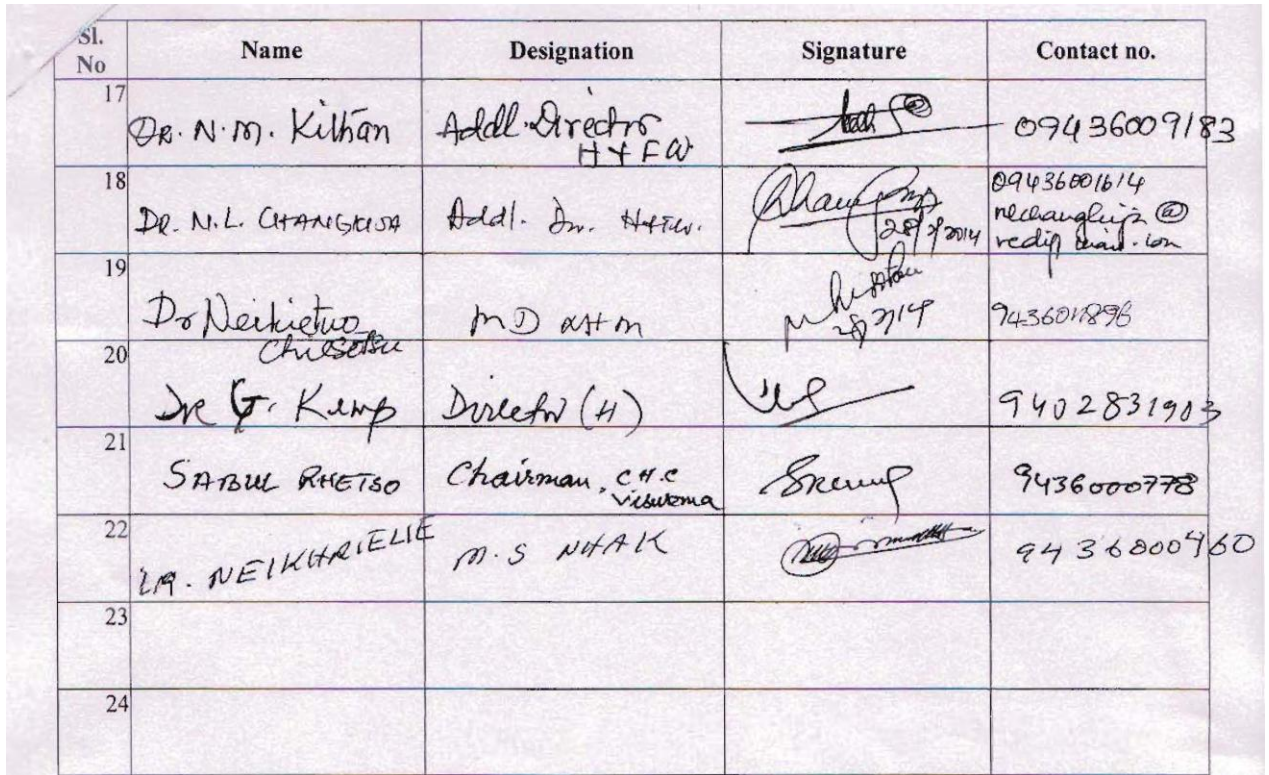 Sl. No Name Designation Signature Contact no.
17 DR. N. M. Kithan Addl. Director H & FW 09436009183
18 DR. N.L. CHANGKIJA Addl. Dir. H&FW. 28/2/2014 09436001614
19 Dr Neikietuo Chusetsu MD 28/2/14
20 Dr G. Kemp Director (H) 9402831903
21 SABUL RHETSO Chairman, C H.C Viswema 9436000778
22 NEIKHRIELIE M.S NHAK 9436000460
23
24